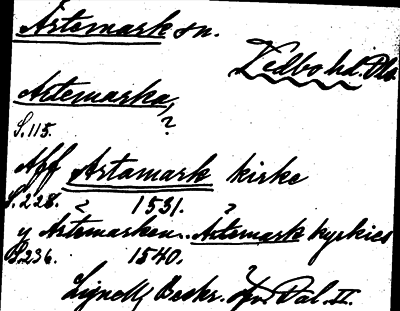 Ärtemark sn.
Vedbo hd. Dls.
Artemarka,
S. 115. ?
Aff Artamark kirke
S. 228. 1531.
y Ärtemarken.. Ärtemark kyrkies
S. 236. 1540. ?
Lignell, Beskr. Dal. II.